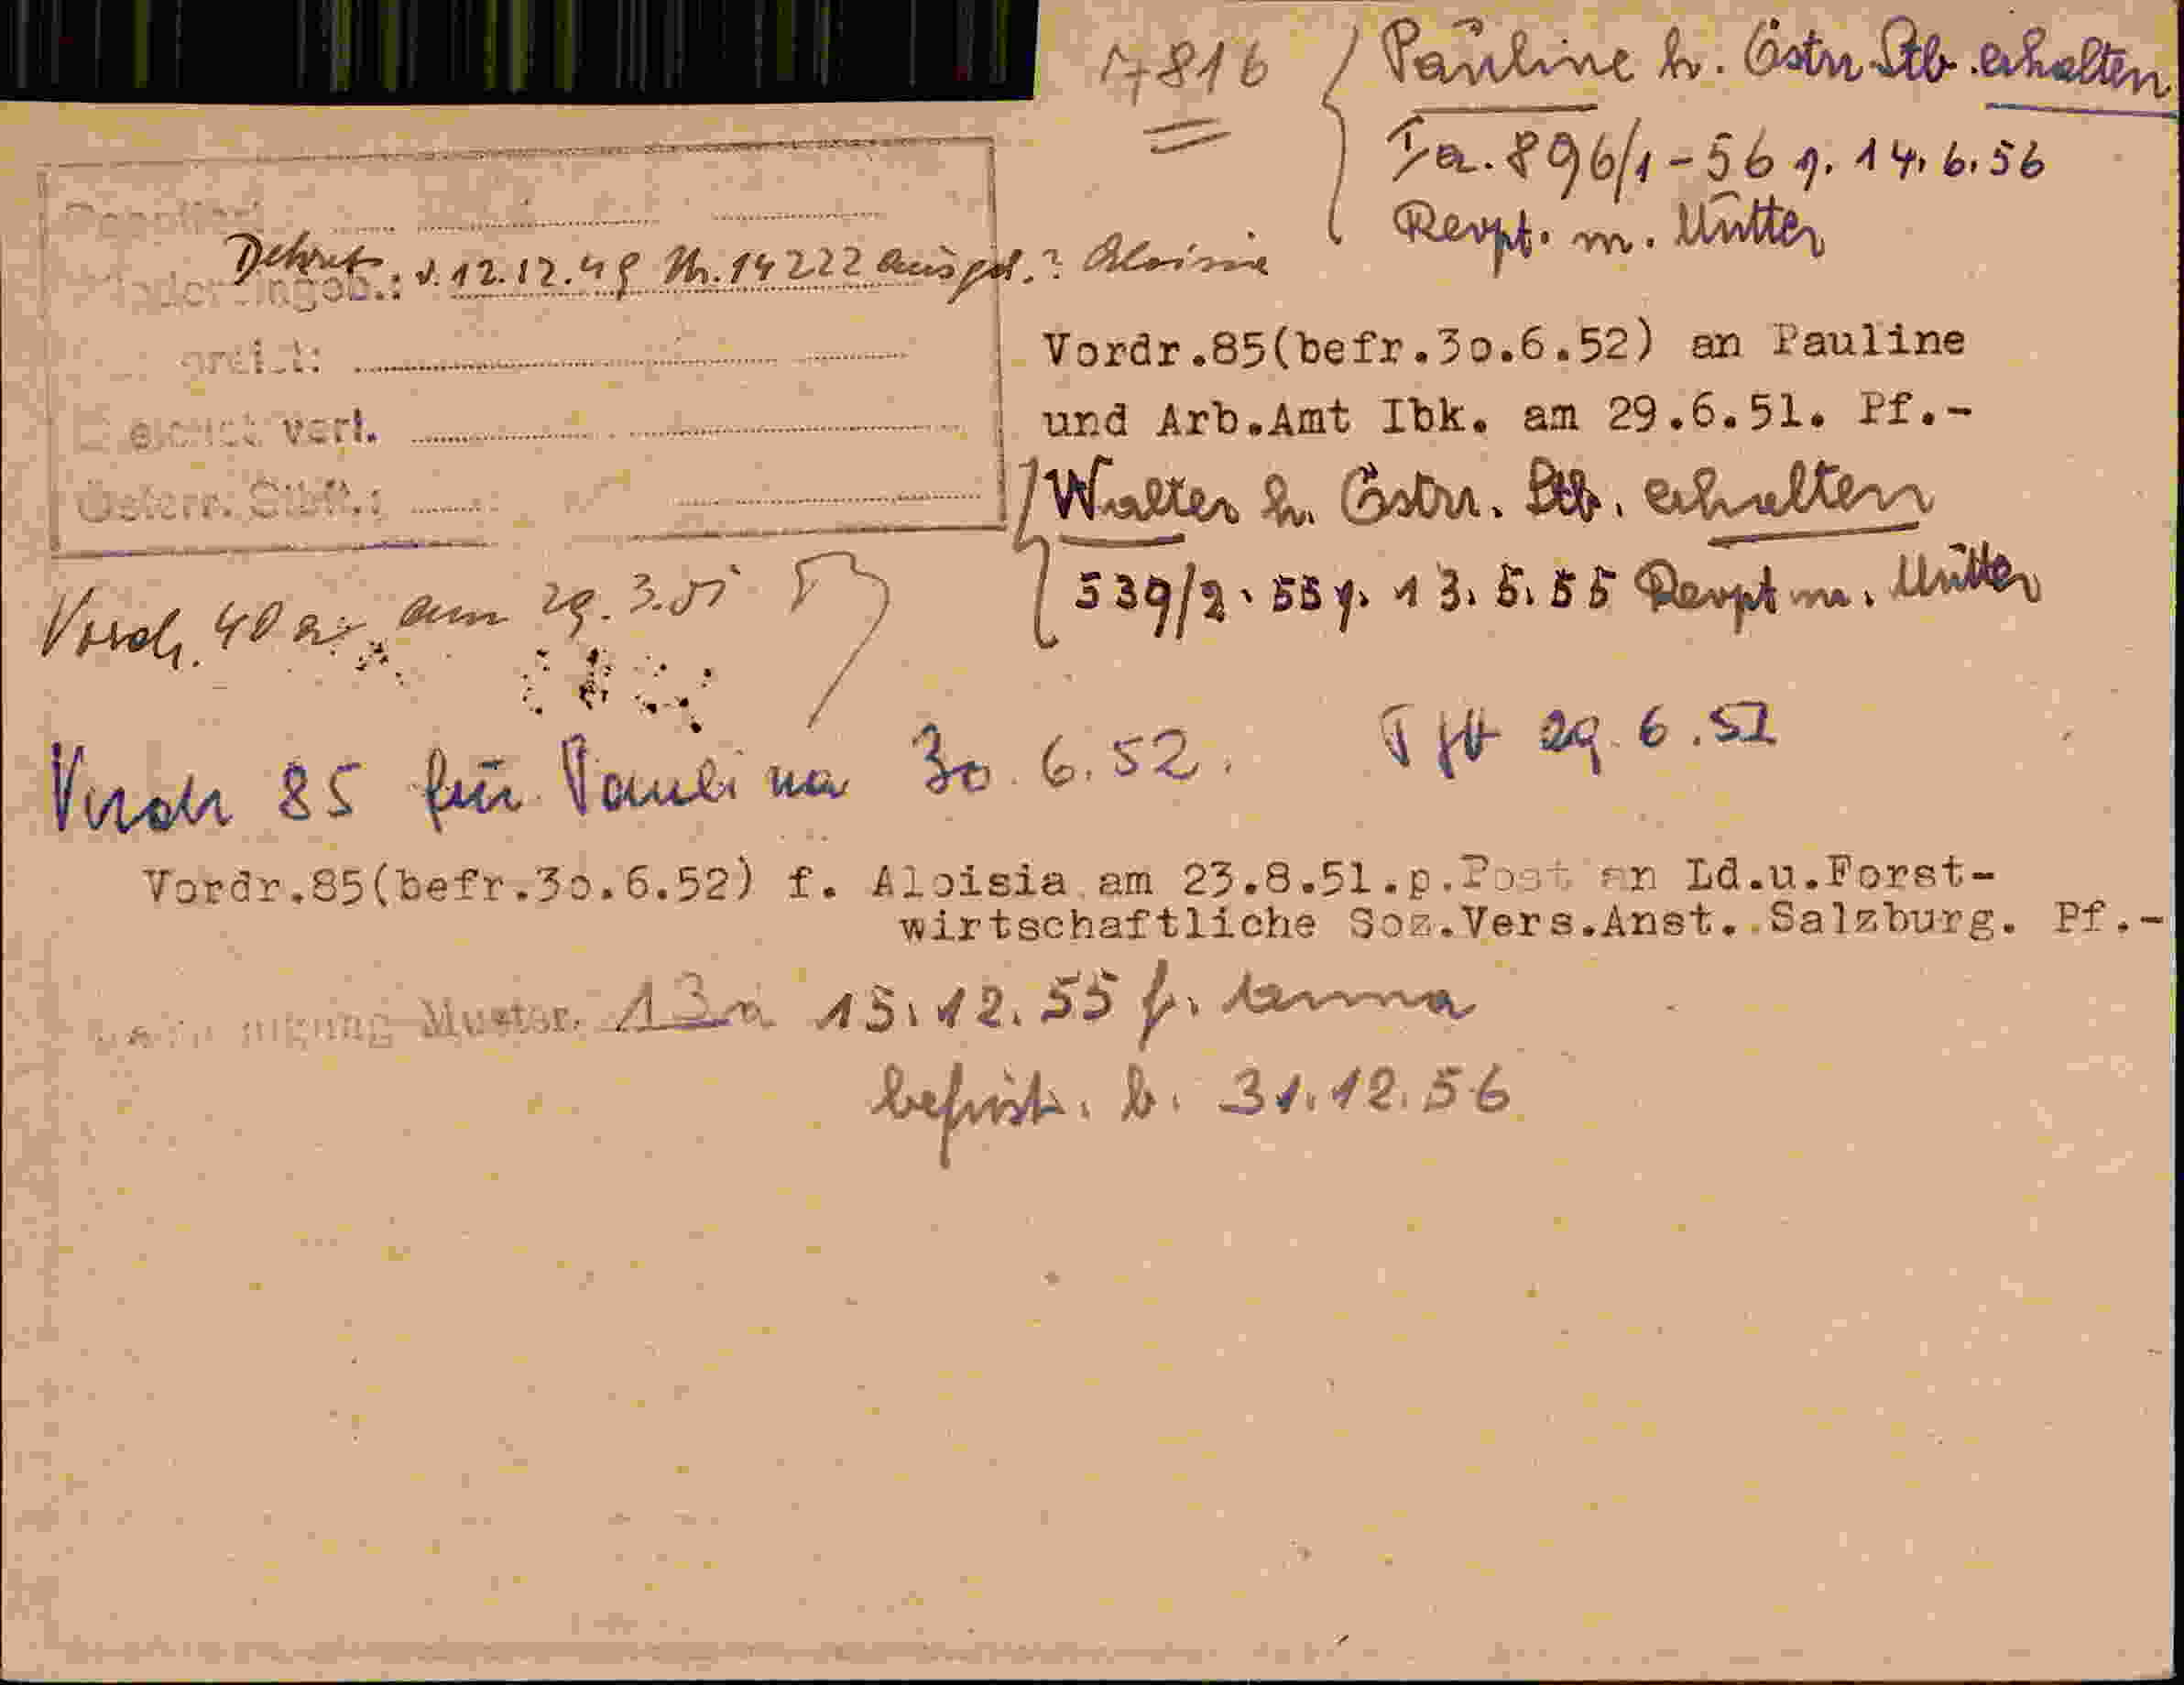 7816
Pauline h. Östrr. Stb. erhalten
Ia. 896/1-56 v. 14.6.56
Revpt. m. Mutter
Dekret: v. 12.12.49 Nr. 14222 ausgef.? Aloisia
Vordr.85(befr.3o.6.52) an Pauline
und Arb.Amt Ibk. am 29.6.51. Pf.-
verl.
Österr. Stbft.:
Walter h. Östrr. Stb. erhalten
539/2-55 v. 13.5.55 Revpt m. Mutter
Vordr. 40 am 29.3.51
Vordr 85 für Paulina 30.6.52. 29.6.51
Vordr.85(befr.3o.6.52) f. Aloisia am 23.8.51.p.Post an Ld.u.Forst-
wirtschaftliche Soz.Vers.Anst. Salzburg. Pf.-
Muster 13a 15.12.55 f. Anna
befrist. b. 31.12.56